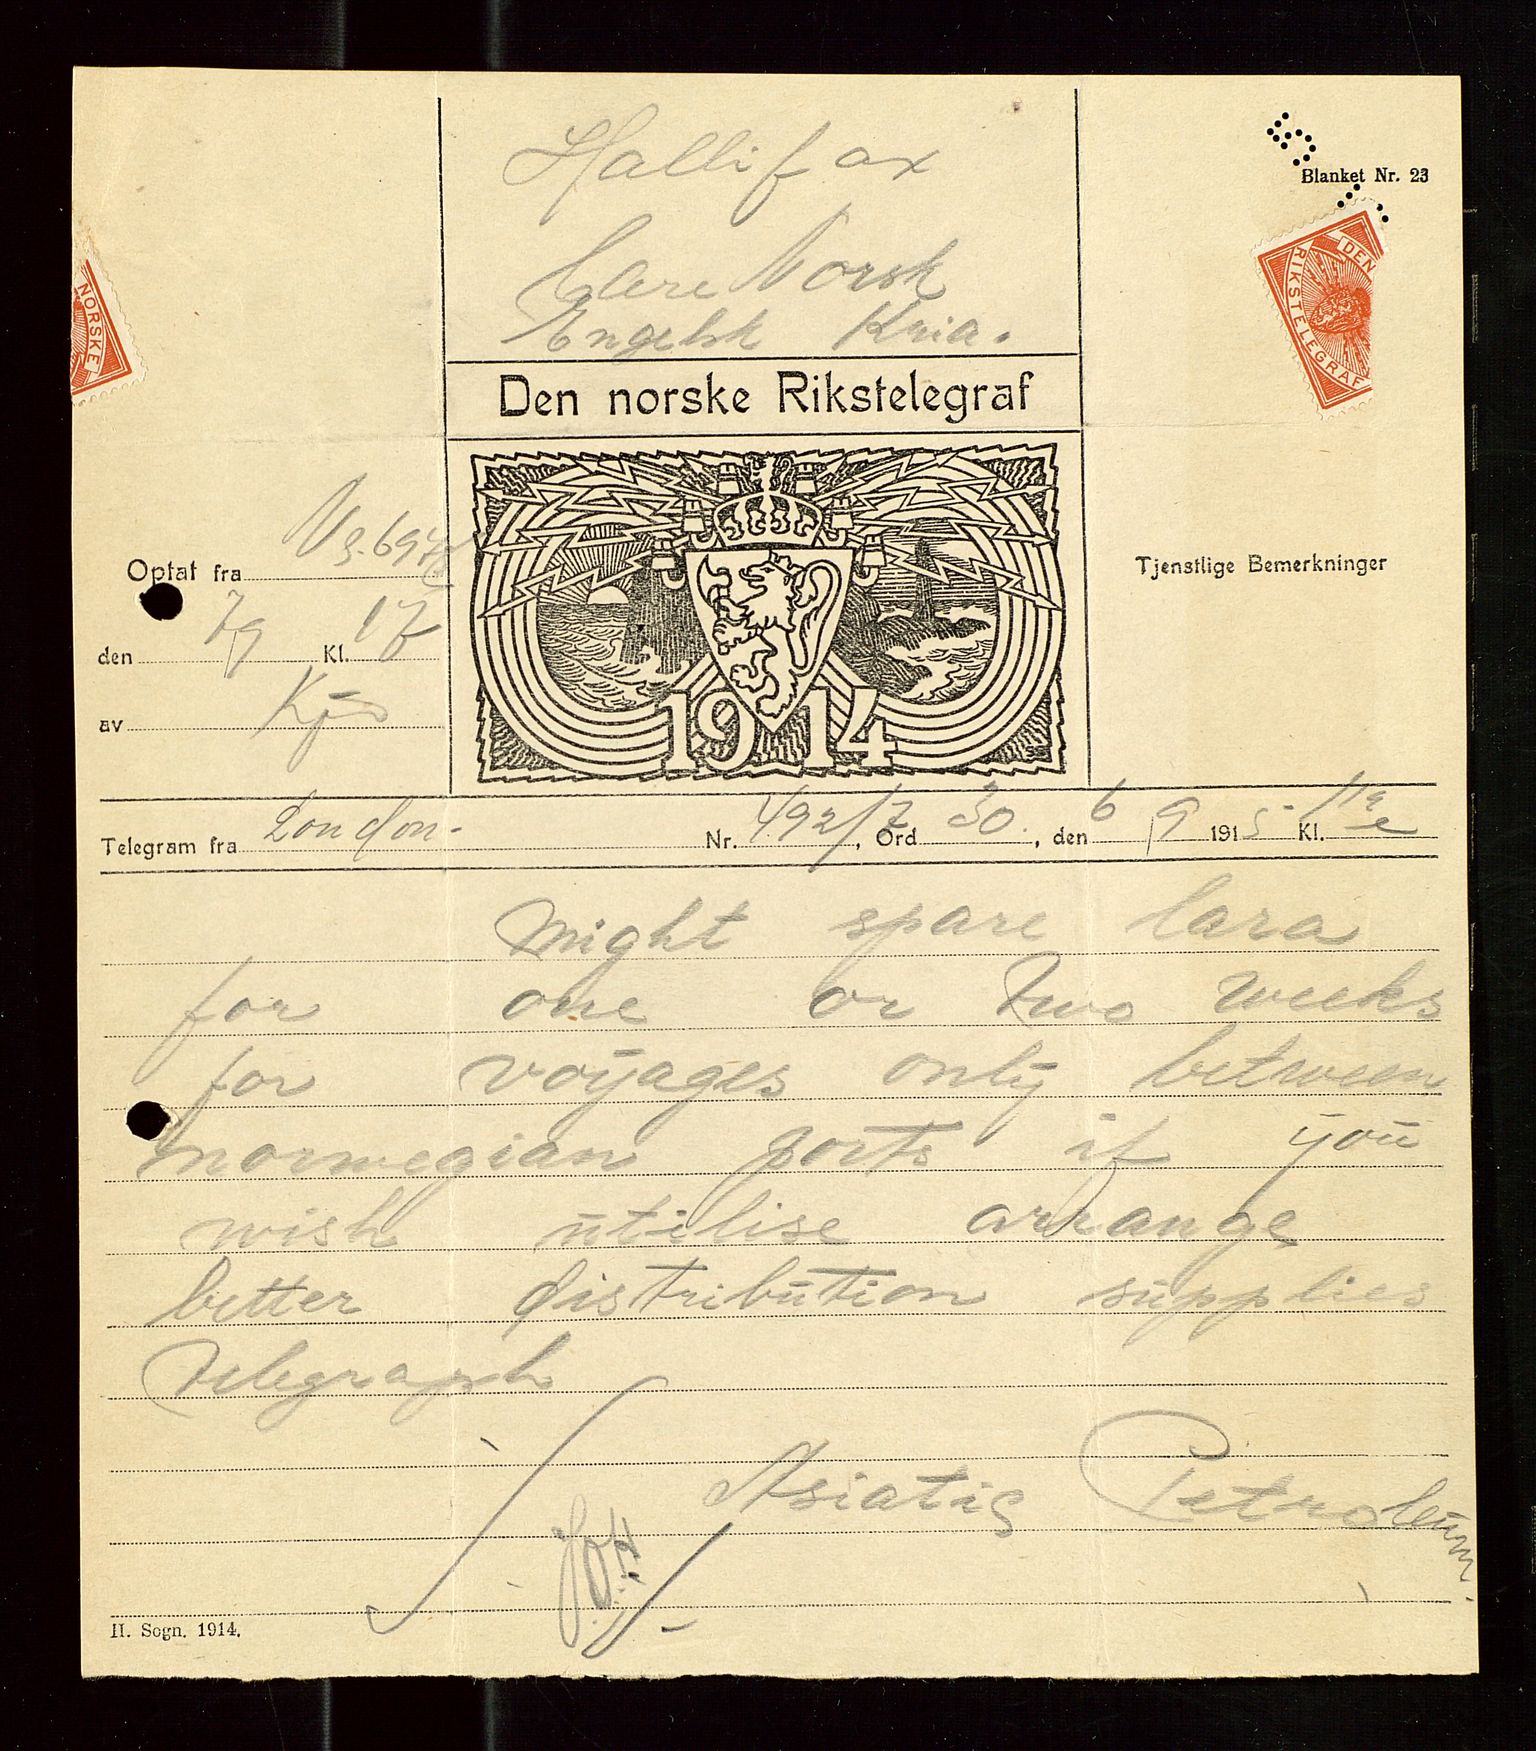 Hallifax
Blanket Nr. 23
Care Norsk
Engelsk Kria.
DEN
RIKSTELEGRAF
NORSKE
Den norske Rikstelegraf
Optat fra
Tjenstlige Bemerkninger
den 7/9 Kl. 17
av
1914
Telegram fra London. Nr. 492/7, Ord 30., den 6/9 1915 Kl. 11
might spare lara
for one or two weeks
for voyages only between
norwegian ports if you
wish utilise arrange
better distribution supplies
telegraph
Asiatic Petroleum.
II. Sogn. 1914.